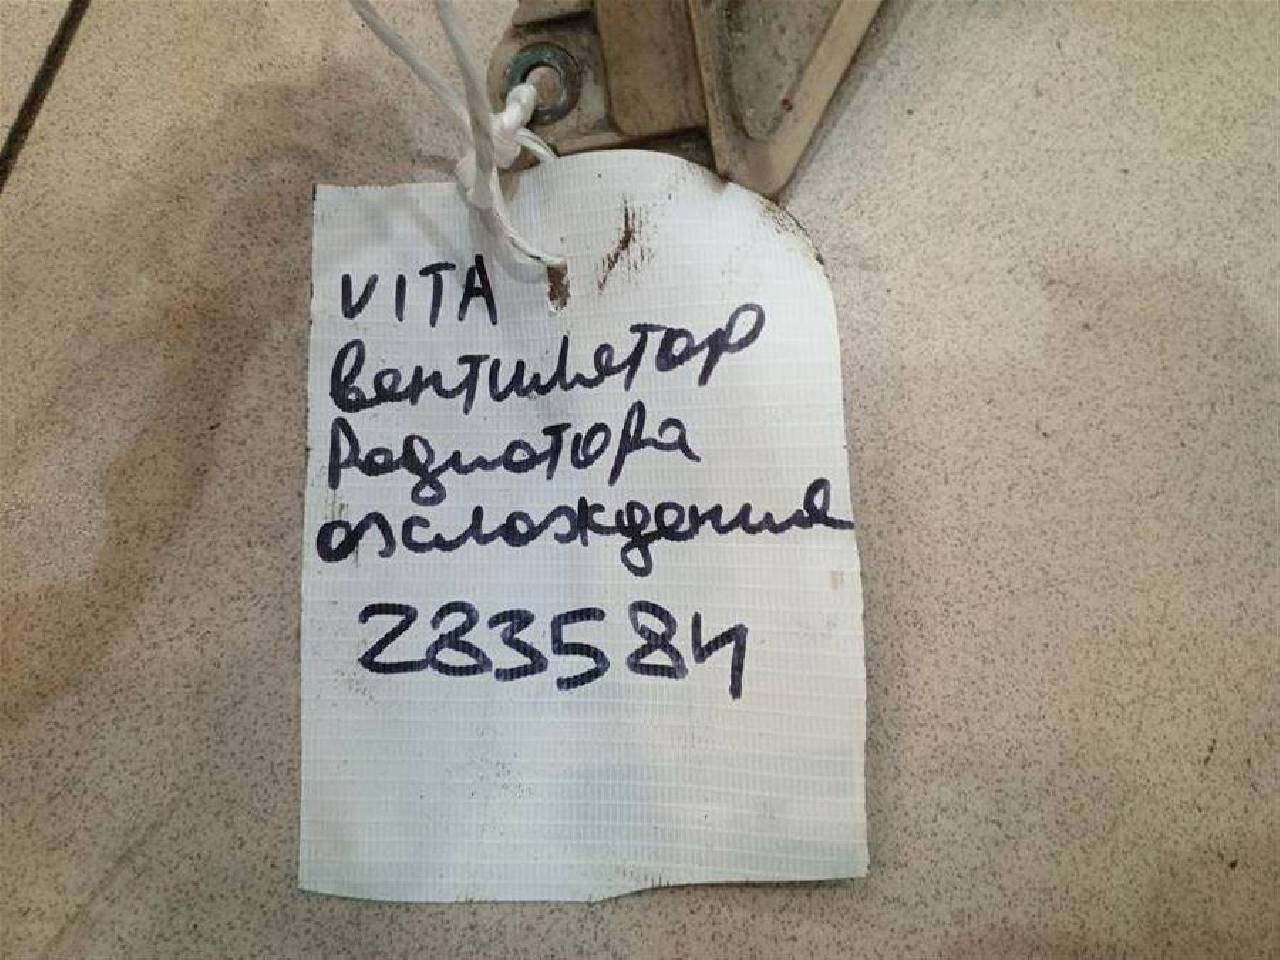 VITA
вентилятор
Радиатора
охлаждения
283584